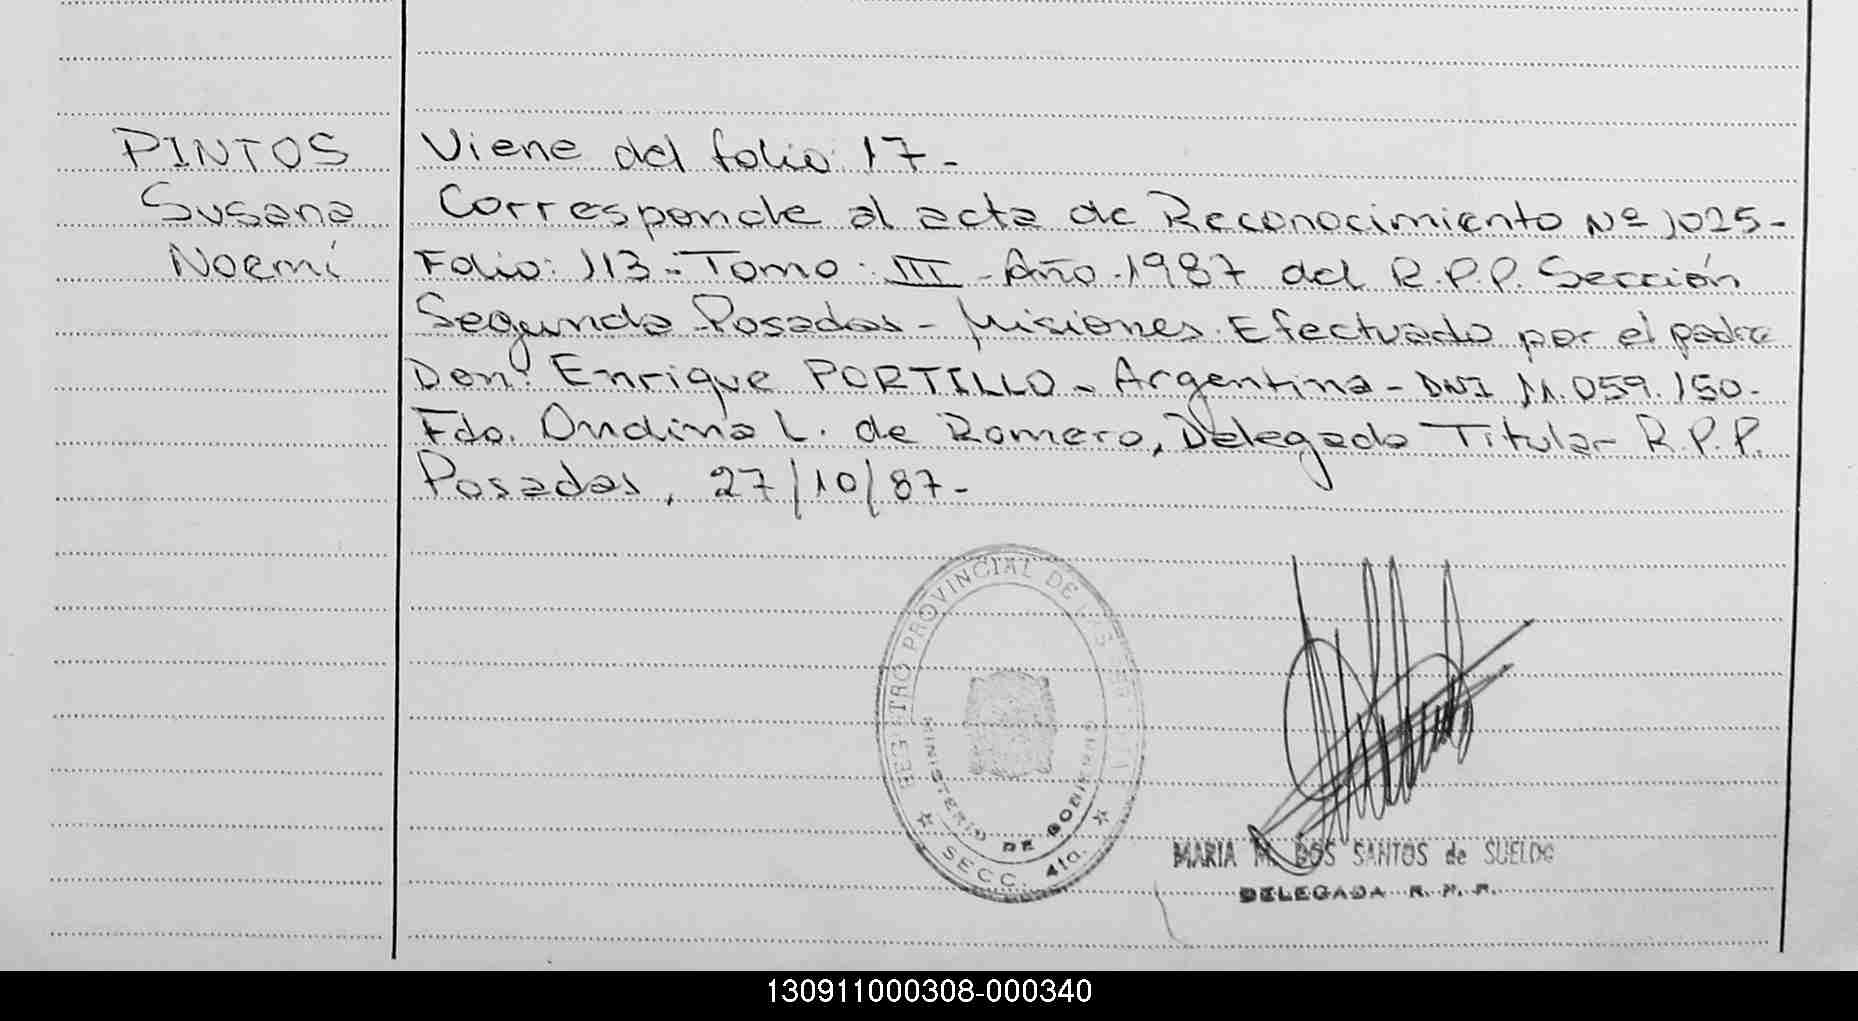 PINTOS
Susana
Noemí
Viene del folio: 17-
Corresponde al acta de Reconocimiento Nº 1025-
Folio: 113-Tomo: III-Año-1987 del R.P.P. Sección
Segunda Posadas-Misiones. Efectuado por el padre
Don: Enrique PORTILLO-Argentina-DNI 11.059.150.-
Fdo. Ondina L. de Romero, Delegado Titular R.P.P.
Posadas, 27/10/87-
REGISTRO PROVINCIAL DE LAS
MINISTERIO DE GOBIERNO
SECC. 4ta.
MARIA M. DOS SANTOS de SUELDO
DELEGADA R. P. P.
130911000308-000340